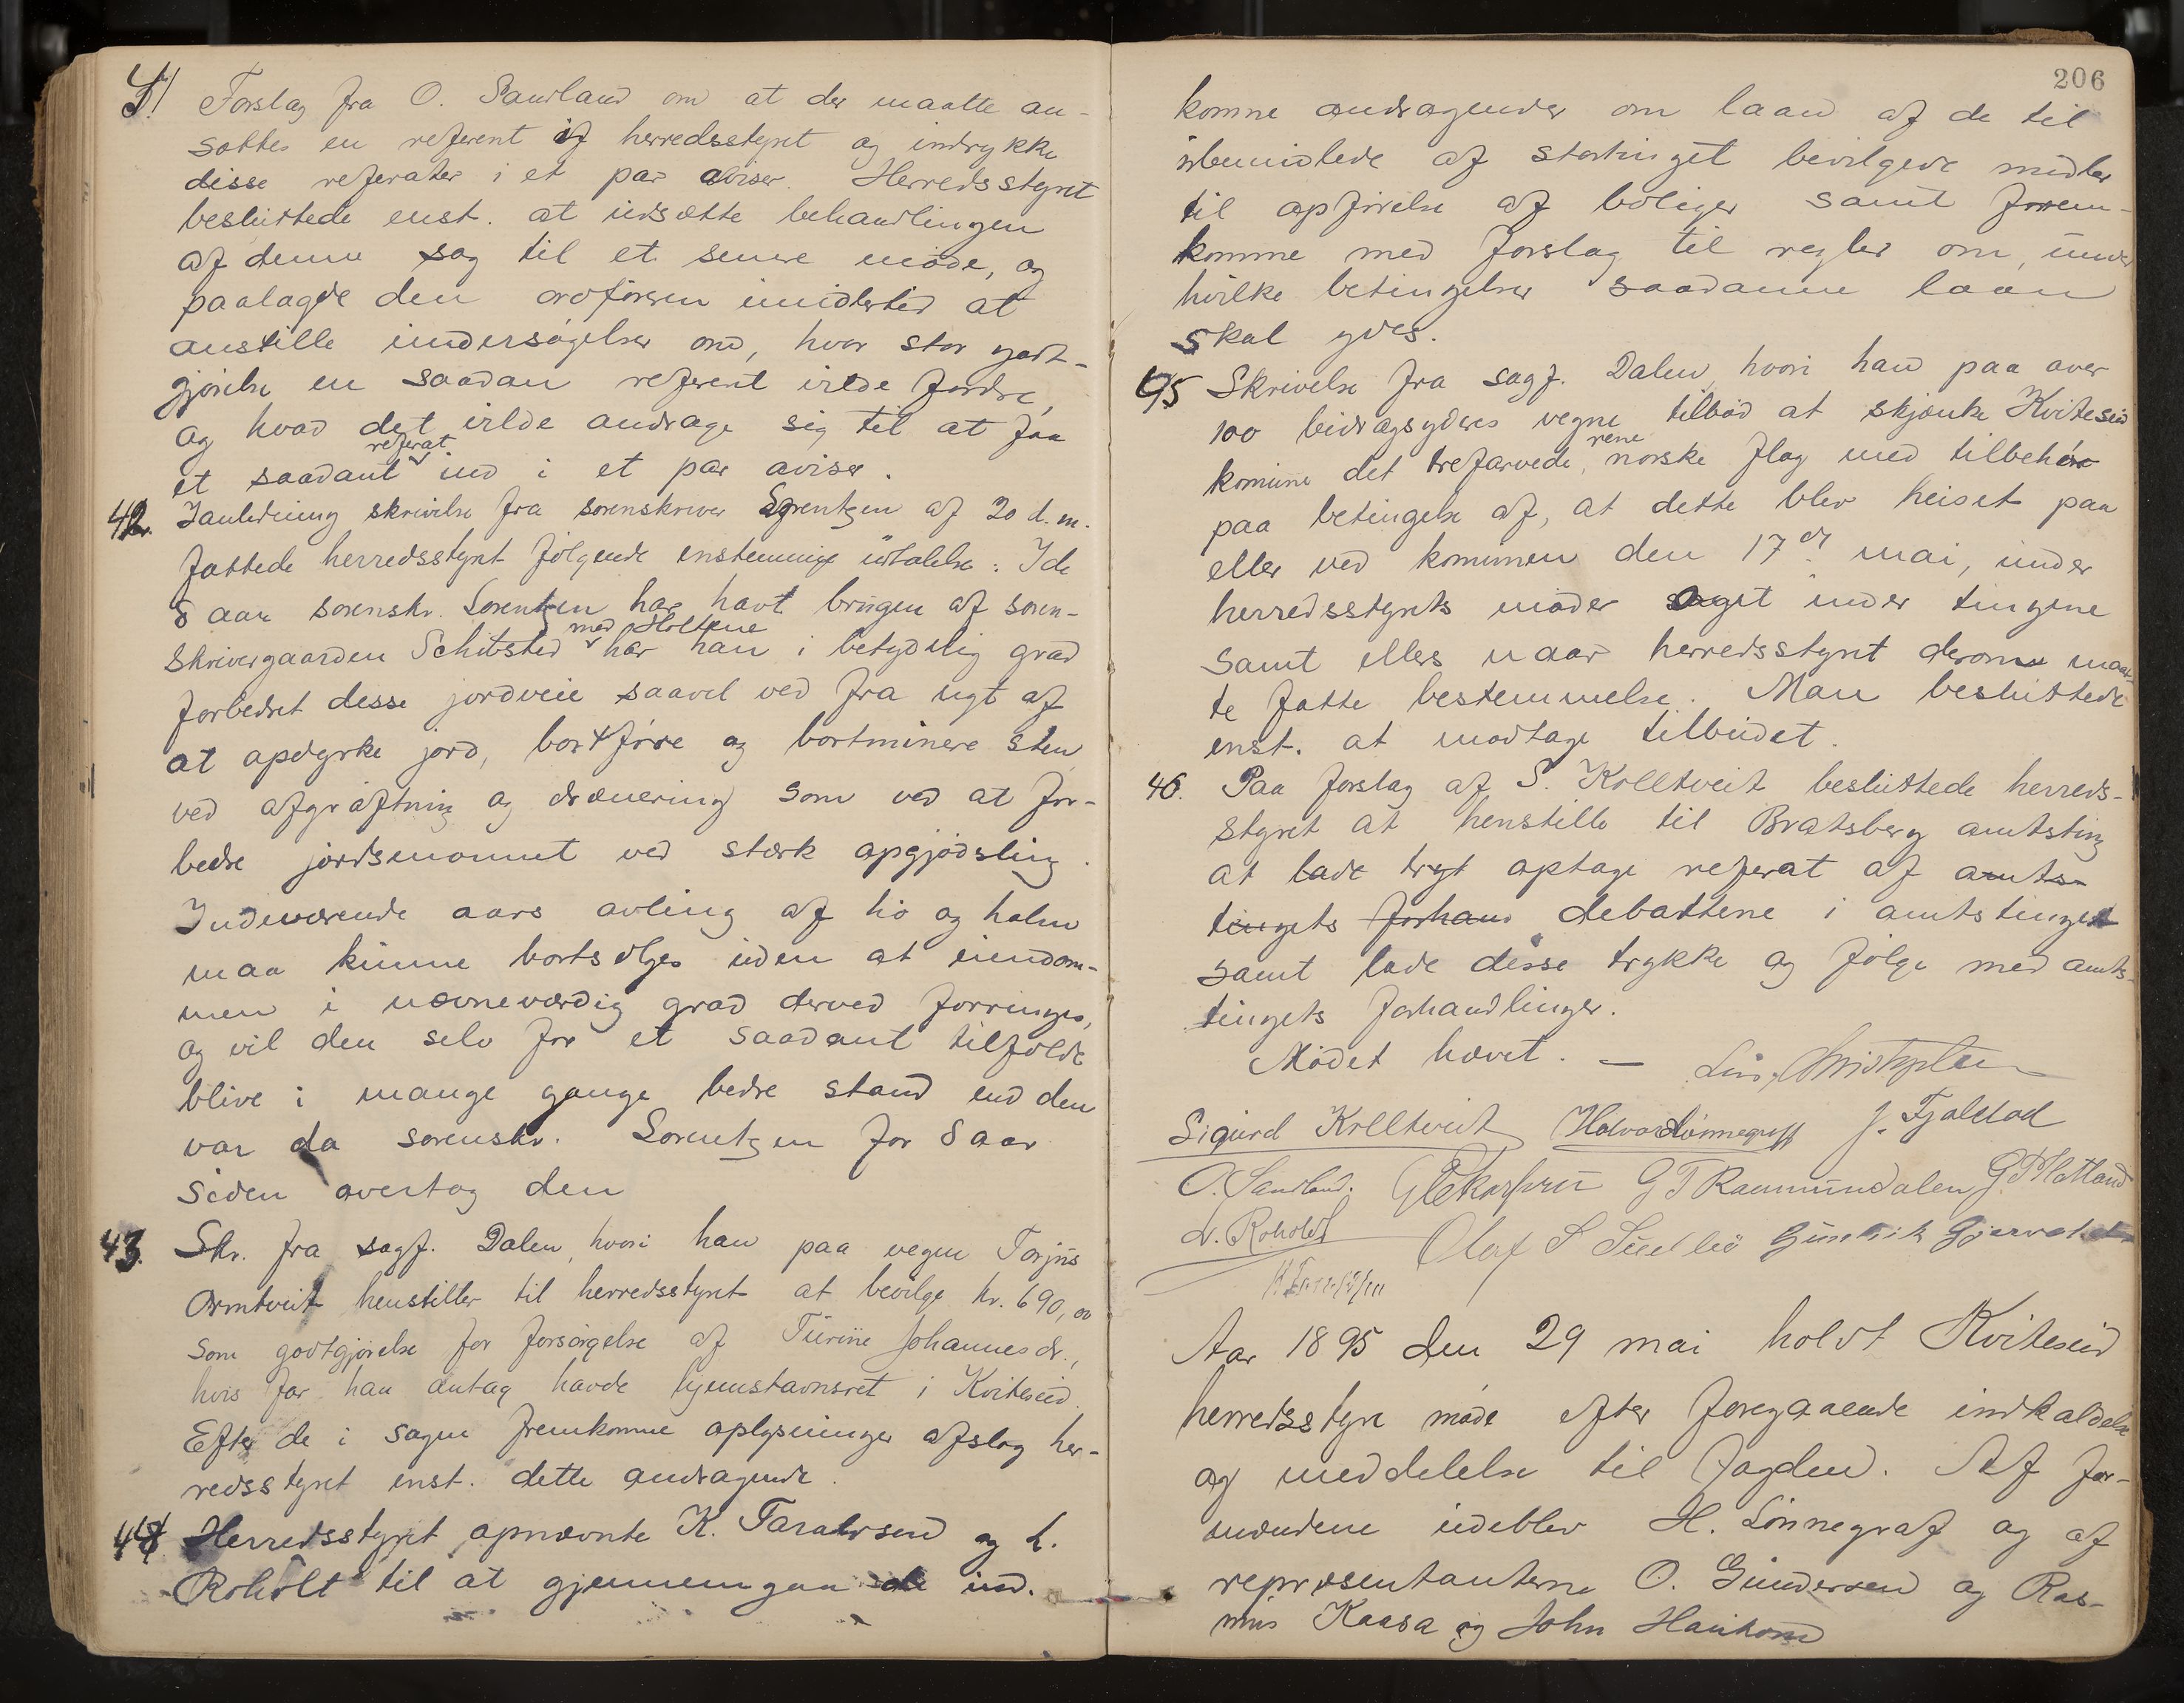 41 Forslag fra O. Sandland om at der maatte an-
sættes en referent if herredsstyret og indrykke
disse referater i et par aviser. Herredsstyret
besluttede enst. at udsætte behandlingen
af denne sag til et senere møde, og
paalagde den ordføreren imidlertid at
anstille undersøgelser om, hvor stor godt-
gjørelse en saadan referent vilde fordre,
og hvad det vilde andrage sig til at faa
referat
et saadant ind i et par aviser.
42. I anledning skrivelse fra sorenskriver Lorentzen af 20 d.m.
fattede herredsstyret følgende enstemmige udtalelse: I de
8 aar sorenskr. Lorentzen har havt brugen af soren-
med Holtene
skrivergaarden Schibsted har han i betydelig grad
forbedret desse jordveie saavel ved fra nyt af
at opdyrke jord, bortføre og bortminere sten,
ved afgrøftning og drænering som ved at for-
bedre jordsmonnet ved stærk opgjødsling.
Indeværende aars avling af hø og halm
maa kunne bortsælges uden at eiendom-
men i nævneværdig grad derved forringes,
og vil den selv for et saadant tilfælde
blive i mange gange bedre stand end den
var da sorenskr. Lorentzen for 8 aar
siden overtog den
43. Skr. fra sagf. Dalen, hvori han paa vegne Torjus
Ormtveit henstiller til herredsstyret at bevilge kr. 690,00
som godtgjørelse for forsørgelse af Turine Johannesdr.,
hvis far han antog havde hjemstavnsret i Kviteseid.
Efter de i sagen fremkomne oplysninger afslog her-
redsstyret enst. dette andragende.
44 Herredsstyret opnævnte K. Taraldsen og L.
Roholt til at gjennemgaa de ind.
206
komne andragender om laan af de til
ubemidlede af stortinget bevilgede midler
til opførelse af boliger samt frem-
komme med forslag til regler om, under
hvilke betingelser saadanne laan
skal ydes.
45 Skrivelse fra sagf. Dalen, hvori han paa over
100 bidragsyderes vegne tilbød at skjænke Kviteseid
rene
komune det trefarvede, norske flag med tilbehør
paa betingelse af, at dette blev heiset paa
eller ved komunen den 17de mai, under
herredsstyrets møder og under tingene
samt ellers naar herredsstyret derom maat-
te fatte bestemmelse. Man besluttede
enst. at modtage tilbudet.
46. Paa forslag af S. Kolltveit besluttede herreds-
styret at henstille til Bratsberg amtsting
at lade trykt optage referat af amts-
tingets forhand debattene i amtstinget
samt lade disse trykke og følge med amts-
tingets forhandlinger.
Mødet hævet. —
Sigurd Kolltveit Halvor Lønnegraff J. Fjalestad
O. Sandland. G T Raamundalen G. P. Flatland
L. Roholdt Olaf S Sundbø Gunleik Gjervoldstad
Aar 1895 den 29 mai holdt Kviteseid
herredsstyre møde efter foregaaende indkaldelse
og meddelelse til fogden. Af for-
mændene udeblev H. Lønnegraf og af
repræsentanterne O. Gundersen og Ras-
mus Kaasa og John Haukom